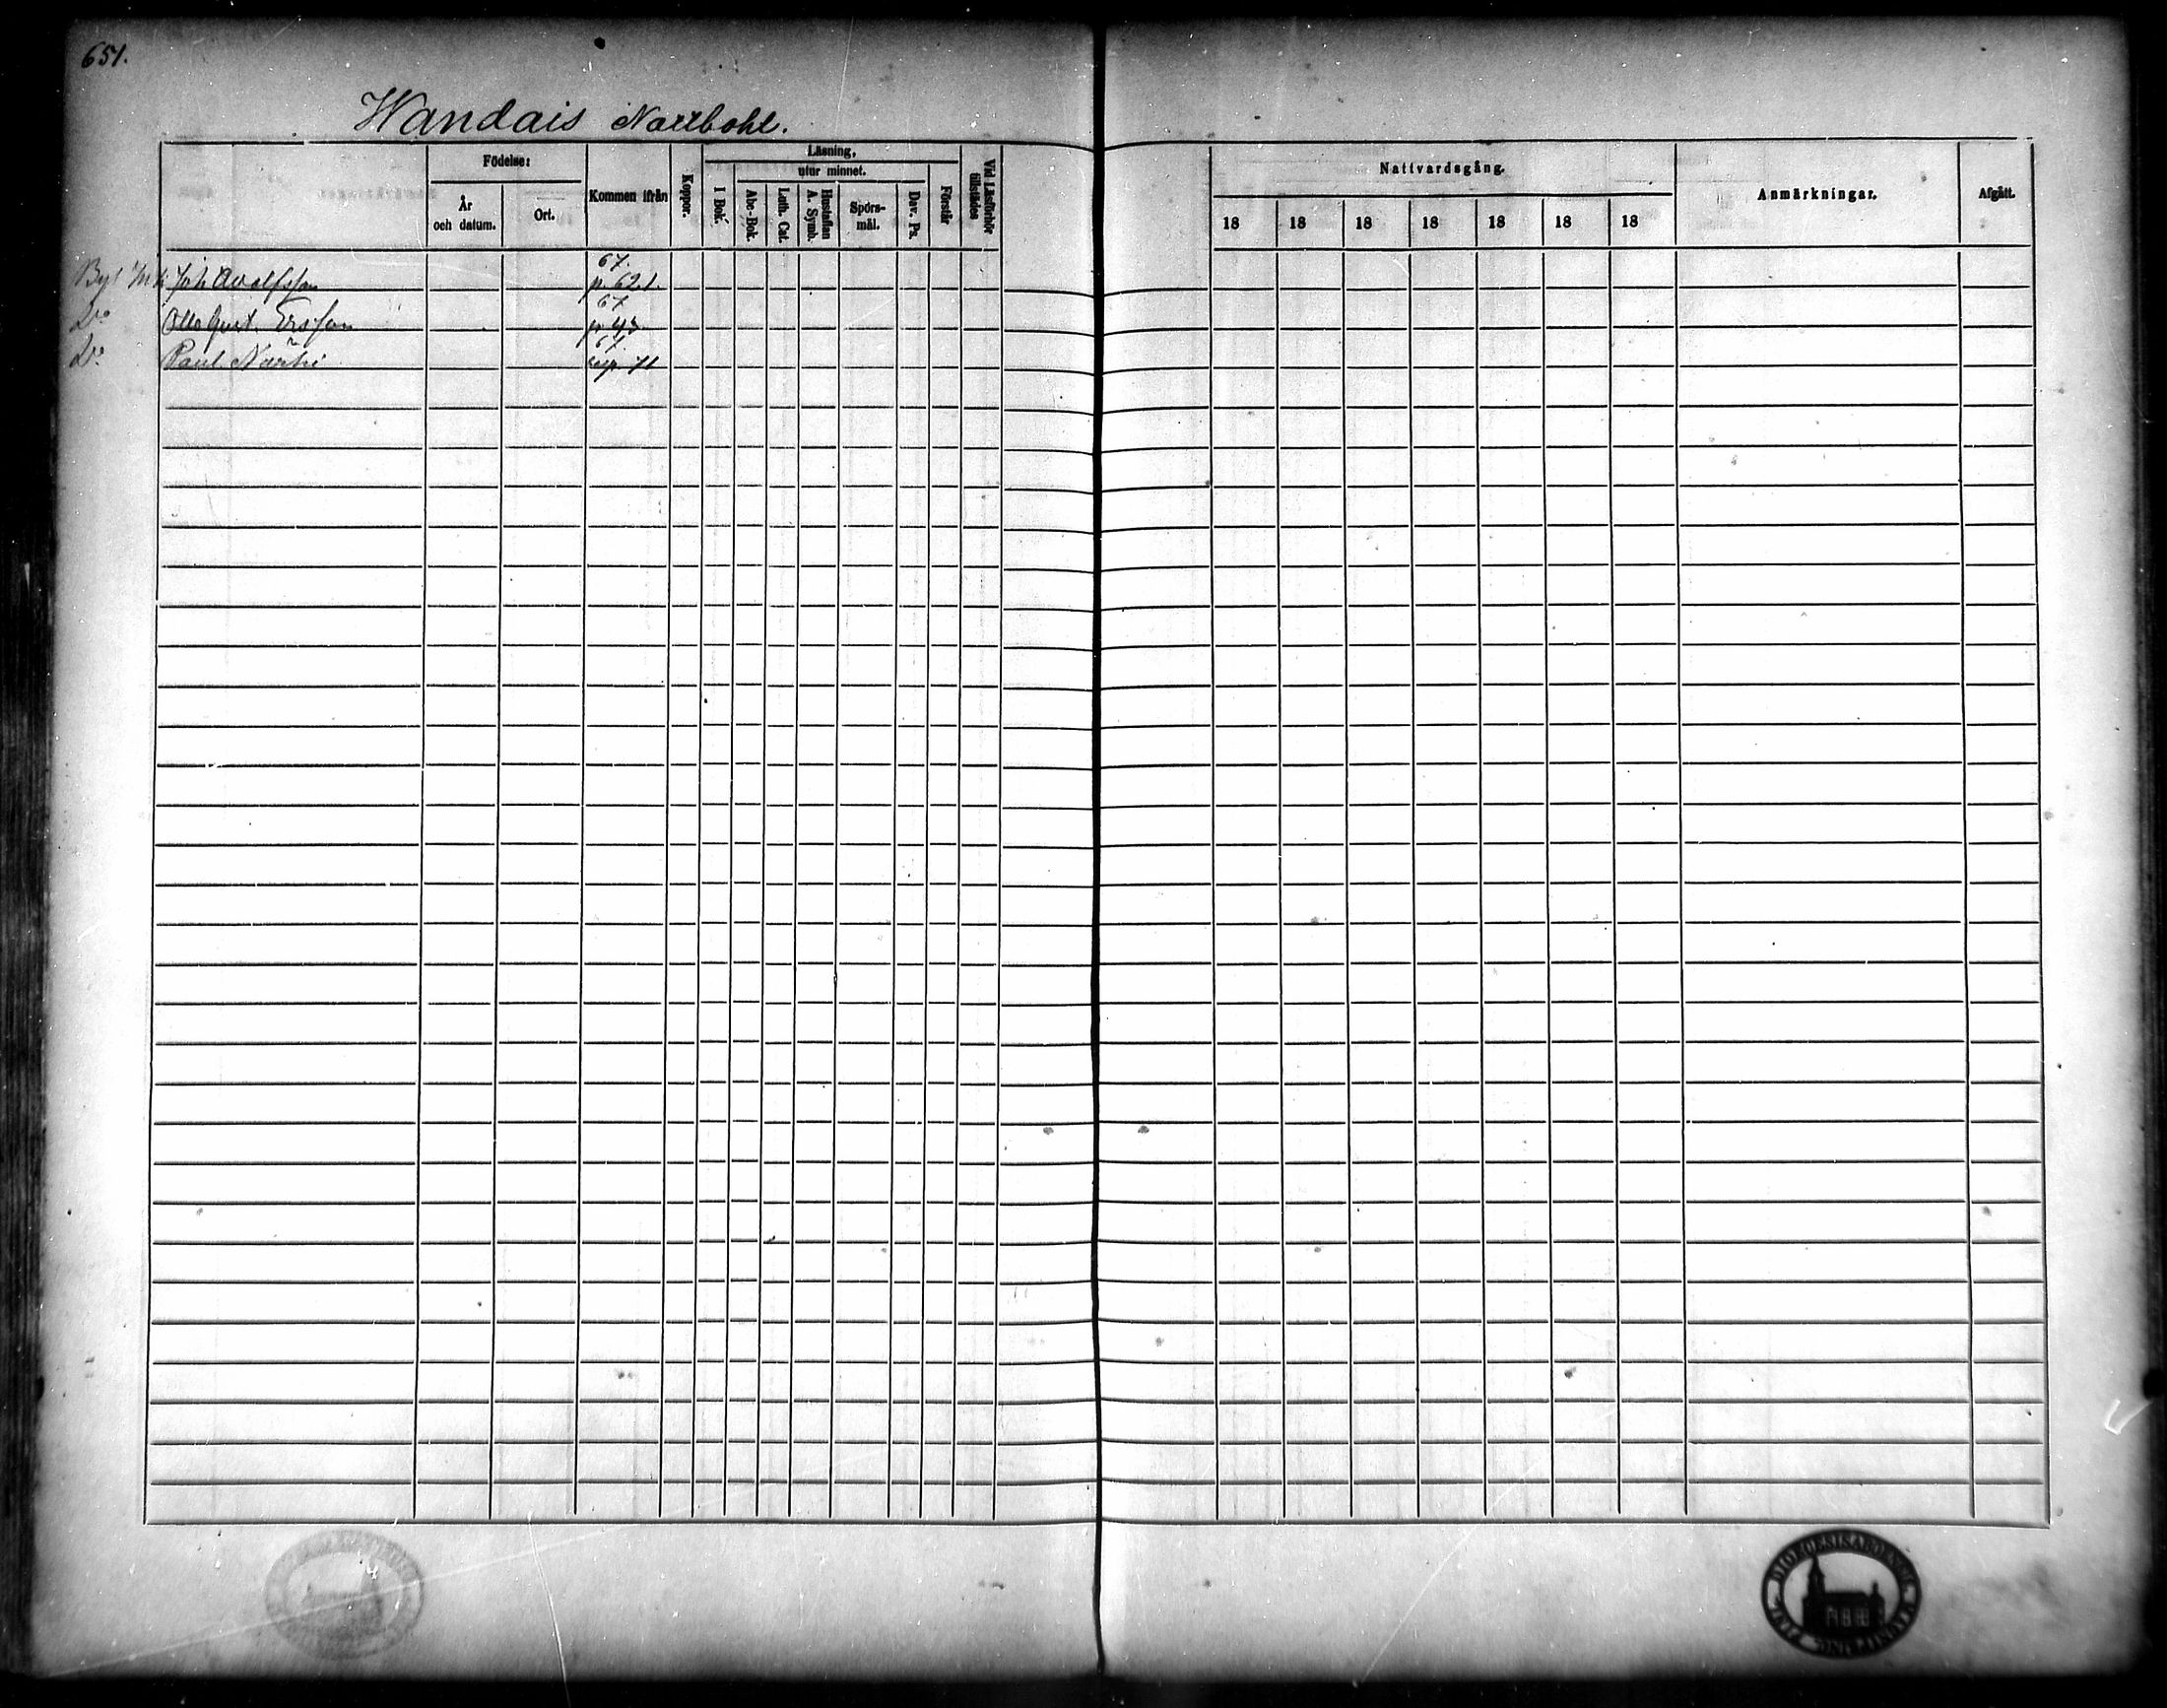 651.
Wandais Nattbohl.
Födelse:
År och datum.
Ort.
Kommen ifrån
Koppor.
Läsning,
utur minnet.
I Bok.
Abc-Bok.
Luth. Cat.
Hustaflan A. Symb.
Spörs-mål.
Dav. Ps.
Förstår
Vid Läsförhör tillstädes
Nattvardsgång.
18 18 18 18 18 18 18
Anmärkningar.
Afgått.
67.
Joh Adolfsson p. 621.
67
Do Otto Gust. Ersson p. 43
67.
Do Paul 71